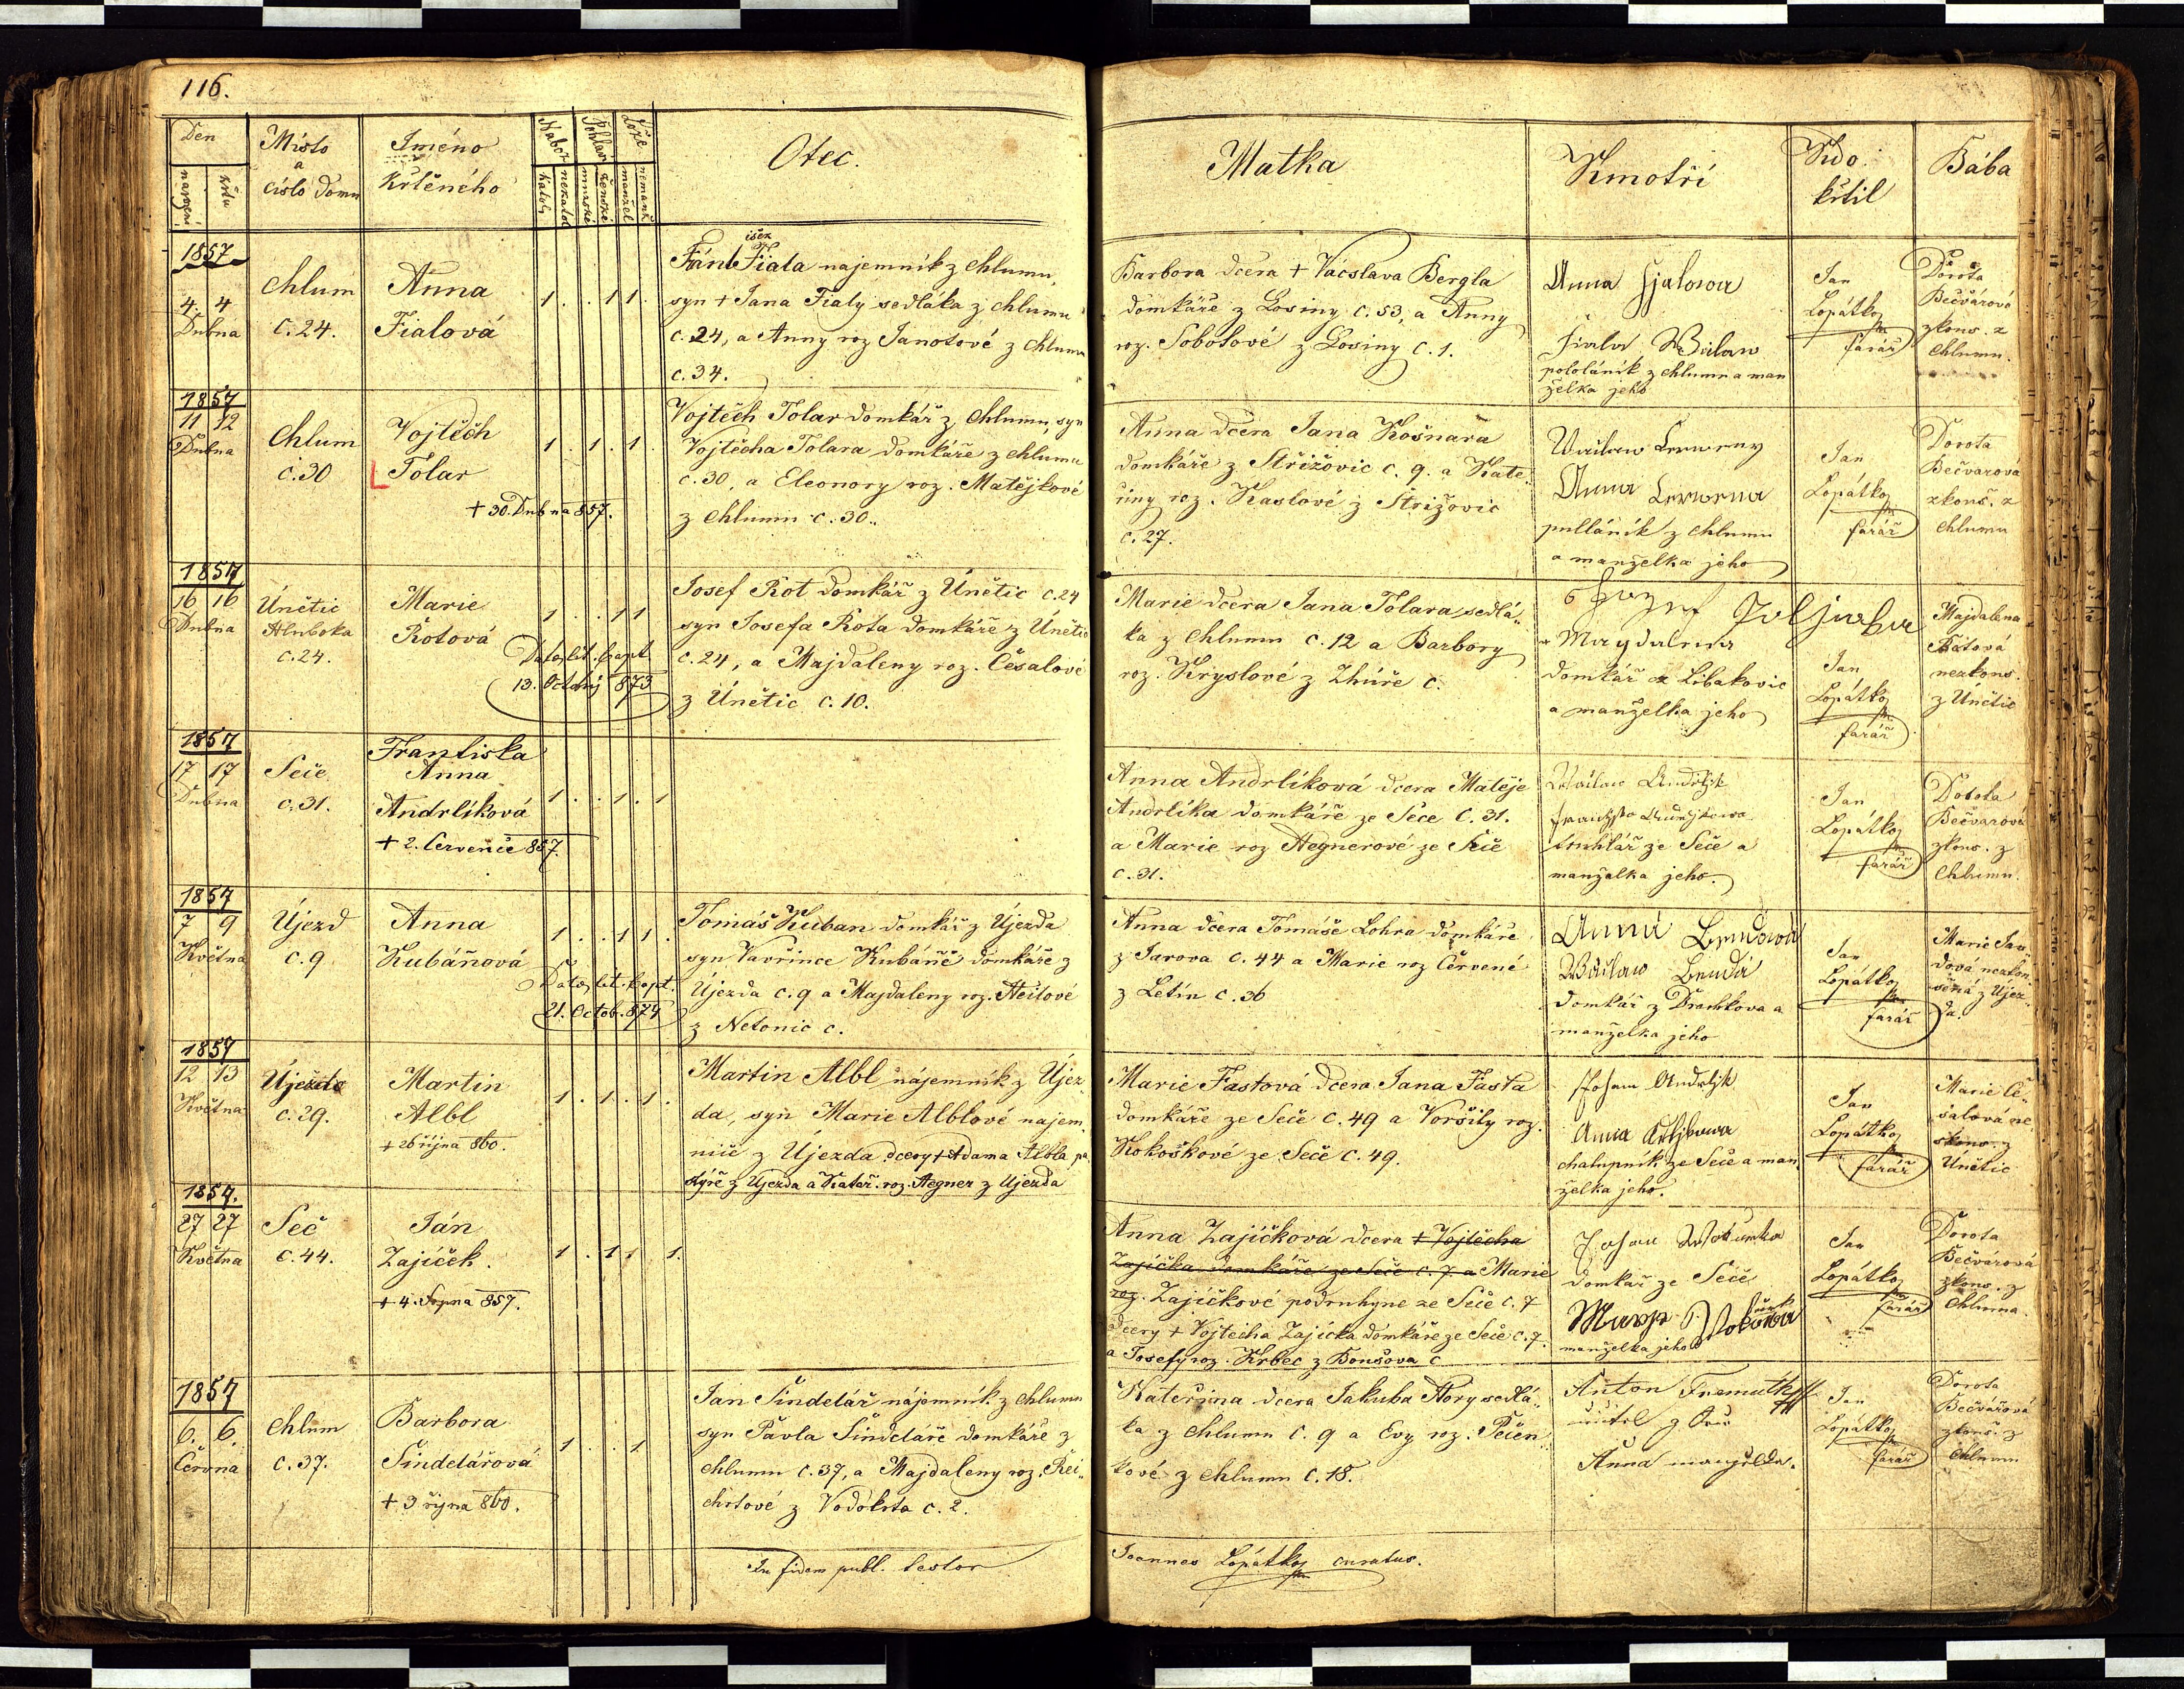 116.
Den
narození
křtu
Místo
a
číslo domu
Iméno
Křtěného
Nábož
katol.
nekatol
Pohlaví
mužské
ženské
Lože
manžel
nemanž
Otec.
Matka
Kmotři
Kdo
křtil
Bába
1857
4. 4
Dubna
Chlum
c. 24.
Anna
Fialová
1 . . 1 1.
Fiala najemník z Chlumu,
syn + Jana Fialy sedláka z Chlumu
c. 24, a Anny roz Janotové z Chlumu
c. 34.
Barbora dcera + Vácslava Bergla
domkáře z Losiny c. 53, a Anny
roz. Sobotové z Losiny c. 1.
Anna Fjalowa
Fiala
pololáník z Chlumu a man
želka jeho
Jan
Lopátko
farář
Dorota
Bečvářová
zkouš. z
Chlumu.
1857
11 12
Dubna
Chlum
c. 30
Vojtěch
Tolar
+ 30. Dubna 857.
1 . 1 . 1
Vojtěch Tolar domkář z Chlumu, syn
Vojtěcha Tolara domkáře z Chlumu
c. 30, a Eleonory roz. Matějkové
z Chlumu c. 30.
Anna dcera Jana Košnara
domkáře z Střižovic c. 9. a Kate
řiny roz. Kaslové z Střižovic
c. 27.
Anna
pulláník z Chlumu
a manželka jeho
Jan
Lopátko
farář
Dorota
Bečvarová
zkouš. z
Chlumu
1857
16 16
Dubna
Únětic
Hluboka
c. 24.
Marie
Rotová
1 . . 1 1
13. 873
Josef Rot domkář z Únětic c. 24
syn Josefa Rota domkáře z Únětic
c. 24, a Majdaleny roz. Česalové
z Únětic c. 10.
Marie dcera Jana Tolara sedlá
ka z Chlumu c. 12 a Barbory
roz. Kryslové z Zhůře c.
Magdalena
domkář z Libakovic
a manželka jeho
Jan
Lopátko
farář
Majdalena
nezkouš.
z Únětic
1857
17 17
Dubna
Seče
c. 31.
Frantiska
Anna
Andrlíková
+ 2. Července 857.
1 . . 1 . 1
Anna Andrlíková dcera Matěje
Andrlíka domkáře ze Seče c. 31.
a Marie roz Hegnerové ze Seče
c. 31.
truhlář ze Seče a
manželka jeho.
Jan
Lopátko
farář
Dorota
Bečvarová
zkouš. z
Chlumu.
1857
7 9
Května
Újezd
c. 9
Anna
Kubáňová
1 . . 1 1 .
21. Octob. 874
Tomáš Kuban domkář z Újezda
syn Vavřince Kubáně domkáře z
Újezda c. 9 a Majdaleny roz. Heilové
z Netonic c.
Anna dcera Tomáše Lohra domkáře
z Jarova c. 44 a Marie roz Červené
z Letin c. 36
Anna
Benda
domkář z Drachkova a
manželka jeho
Jan
Lopátko
farář
1857
12 13
Května
Újezda
c. 29.
Martin
Albl
+ 26 října 860.
1 . 1 . 1 .
Martin Albl nájemník z Újez
da, syn Marie Alblové najem
nice z Újezda dcery + Adama Albla pa
stýře z Újezda a Kateř. roz. Hegner z Újezda
Marie Fastová dcera Jana Fasta
domkáře ze Seče c. 49 a Voršily roz.
Kokoškové ze Seče c. 49.
Johann Andrljk
Anna
chalupník ze Seče a man
želka jeho.
Jan
Lopátko
farář
Marie Če
salová ne
zkouš. z
Únětic
1857.
27 27
Května
Seč
c. 44.
Ján
Zajíček.
+ 4. Srpna 857.
1 . 1 1 1.
Anna Zajíčková dcera + Vojtěcha
Zajíčka domkáře ze Seče c. 7. a Marie
roz. Zajíčkové podruhyne ze Seče c. 7
dcery + Vojtěcha Zajíčka domkáře ze Seče c. 7.
a Josefy roz. Krbec z Bonšova c
Johan
domkář ze Seče
manželka jeho
Jan
Lopátko
farář
Dorota
Bečvárová
zkouš. z
Chlumu
1857
6. 6.
Června
Chlum
c. 37.
Barbora
Šindelářová
+ 3 října 860.
1 . . 1
Jan Šindelář nájemník z Chlumu
syn Pavla Šindeláře domkáře z
Chlumu c. 37, a Majdaleny roz. Rei
chrtové z Vodokrta c. 2.
Kateřina dcera Jakuba Hory sedlá
ka z Chlumu c. 9 a Evy roz. Pečen
kové z Chlumu c. 18.
Anton
Anna manželka.
Jan
Lopátko
farář
Dorota
Bečvářová
zkouš. z
Chlumu
In fidem publ. testor
Joannes Lopátko curatus.